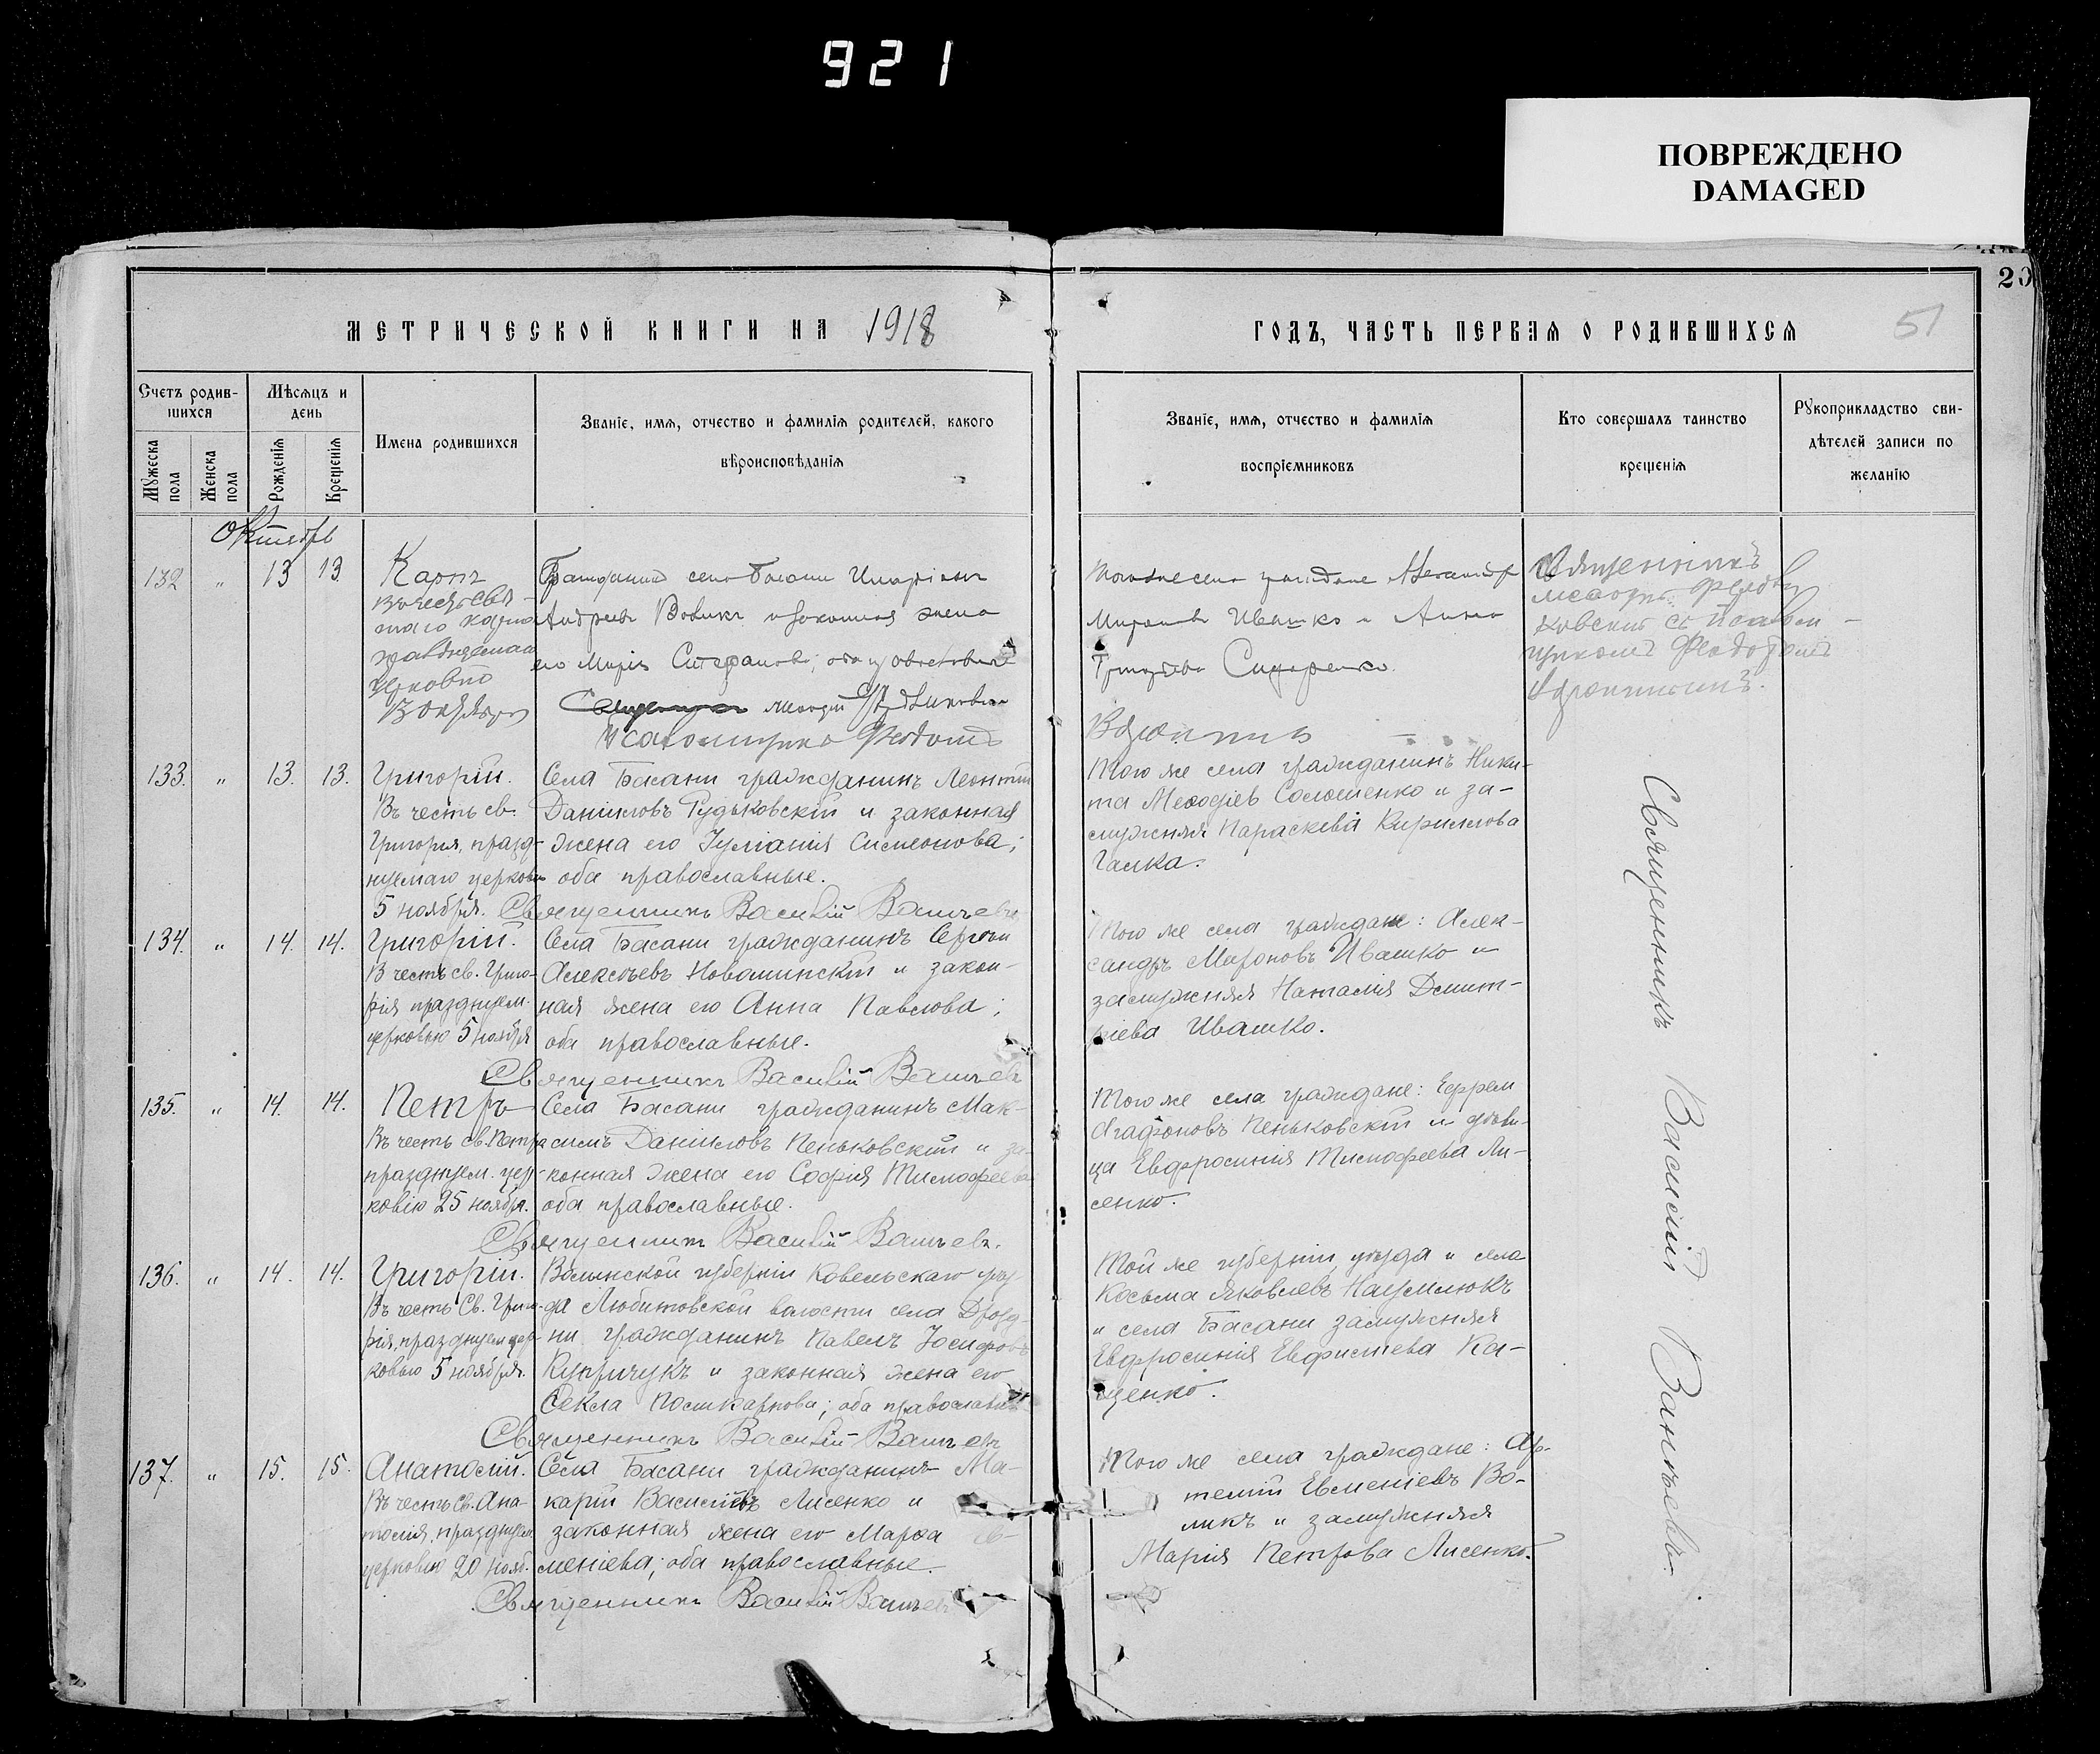 921
ПОВРЕЖДЕНО
DAMAGED
20
МЕТРИЧЕСКОЙ КНИГИ НА 1918
ГОДЪ, ЧАСТЬ ПЕРВАЯ О РОДИВШИХСЯ
51
Счетъ родив-
шихся
Мѣсяцъ и
день
Мужеска
пола
Женска
пола
Рожденія
Крещенія
Имена родившихся
Званіе, имя, отчество и фамилія родителей, какого
вѣроисповѣданія
Званіе, имя, отчество и фамилія
воспріемниковъ
Кто совершалъ таинство
крещенія
Рукоприкладство сви-
дѣтелей записи по
желанію
Октябрь
132 " 13 13
Карпъ
церковію
13 октября
Андреевъ Вовикъ и законная жена
его Марія Стефанова; оба православные
граждане Александръ
Мироновъ Ивашко и Анна
Сидоренко.
Священникъ
133. " 13. 13.
Григорій.
Въ честь св.
Григорія, празд-
нуемаго церковію
5 ноября.
Села Басани гражданинъ Леонтій
Даніиловъ Рудьковскій и законная
жена его Іуліанія Симеонова;
оба православные.
Священникъ Василій Ванчевъ
Того же села гражданинъ Ники-
та Меѳодіевъ Соломенко и за-
мужняя Параскева Кириллова
Галка.
134. " 14. 14.
Григорій.
В честь св. Григо-
рія празднуем.
церковью 5 ноября
Села Басани гражданинъ Сергѣй
Алексѣевъ Новашинскій и закон-
ная жена его Анна Павлова;
оба православные.
Священникъ Василій Ванчевъ
Того же села граждане: Алек-
сандръ Мироновъ Ивашко и
замужняя Наталія Димит-
ріева Ивашко.
135. " 14. 14.
Петръ
Въ честь св. Петра
празднуем. цер-
ковію 25 ноября.
Села Басани гражданинъ Мак-
симъ Даніиловъ Пеньковскій и за-
конная жена его Софія Тимофеева
оба православные.
Священникъ Василій Ванчевъ.
Того же села граждане: Ефрем
Агафоновъ Пеньковскій и дѣви-
ца Евфросинія Тимофеева Ли-
сенко.
136. " 14. 14.
Григорій.
Въ честь Св. Григо-
рія, празднуем цер-
ковью 5 ноября.
Волынской губерніи Ковельскаго уѣз-
да Любитовской волости села Дрозд-
ни гражданинъ Павелъ Іосифовъ
Купричукъ и законная жена его
Ѳекла Поликарпова; оба православн.
Священникъ Василій Ванчевъ
Той же губерніи, уѣзда и села
Косьма Яковлевъ Наумлюкъ
и села Басани замужняя
Евфросинія Евфиміева Ка-
щенко.
137. " 15. 15.
Анатолій.
Въ честь св. Ана-
толія, празднуем
церковью 20 нояб.
Села Басани гражданинъ Ма-
карій Василіевъ Лисенко и
законная жена его Марѳа Ев-
меніева; оба православные.
Священникъ Василій Ванчевъ
Того же села граждане: Ар-
темій Евменіевъ Во-
ликъ и замужняя
Марія Петрова Лисенко.
Священникъ Василій Ванчевъ.